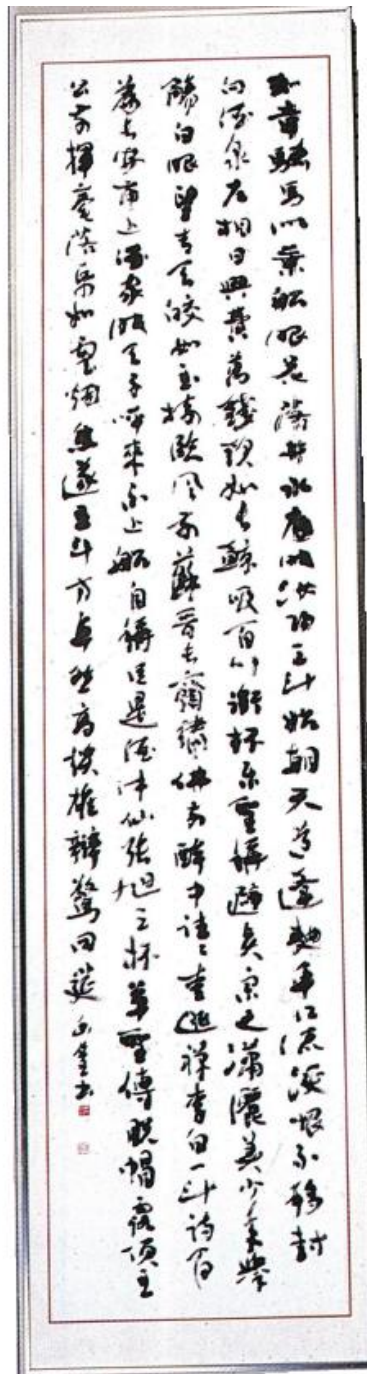 知章騎馬似乘船眼花落井水底眠汝陽三斗始朝天道逢麴車口流涎恨不移封
向酒泉左相日興費萬錢飲如長鯨吸百川銜杯樂聖稱避賢宗之瀟灑美少年舉
觴白眼望青天皎如玉樹臨風前蘇晉長齋繡佛前醉中往々愛逃禪李白一斗詩百
篇長安市上酒家眠天子呼來不上船自稱臣是酒中仙張旭三杯草聖傳脫帽露頂王
公前揮毫落紙如雲煙焦遂五斗方卓然高談雄辯驚四筵 書